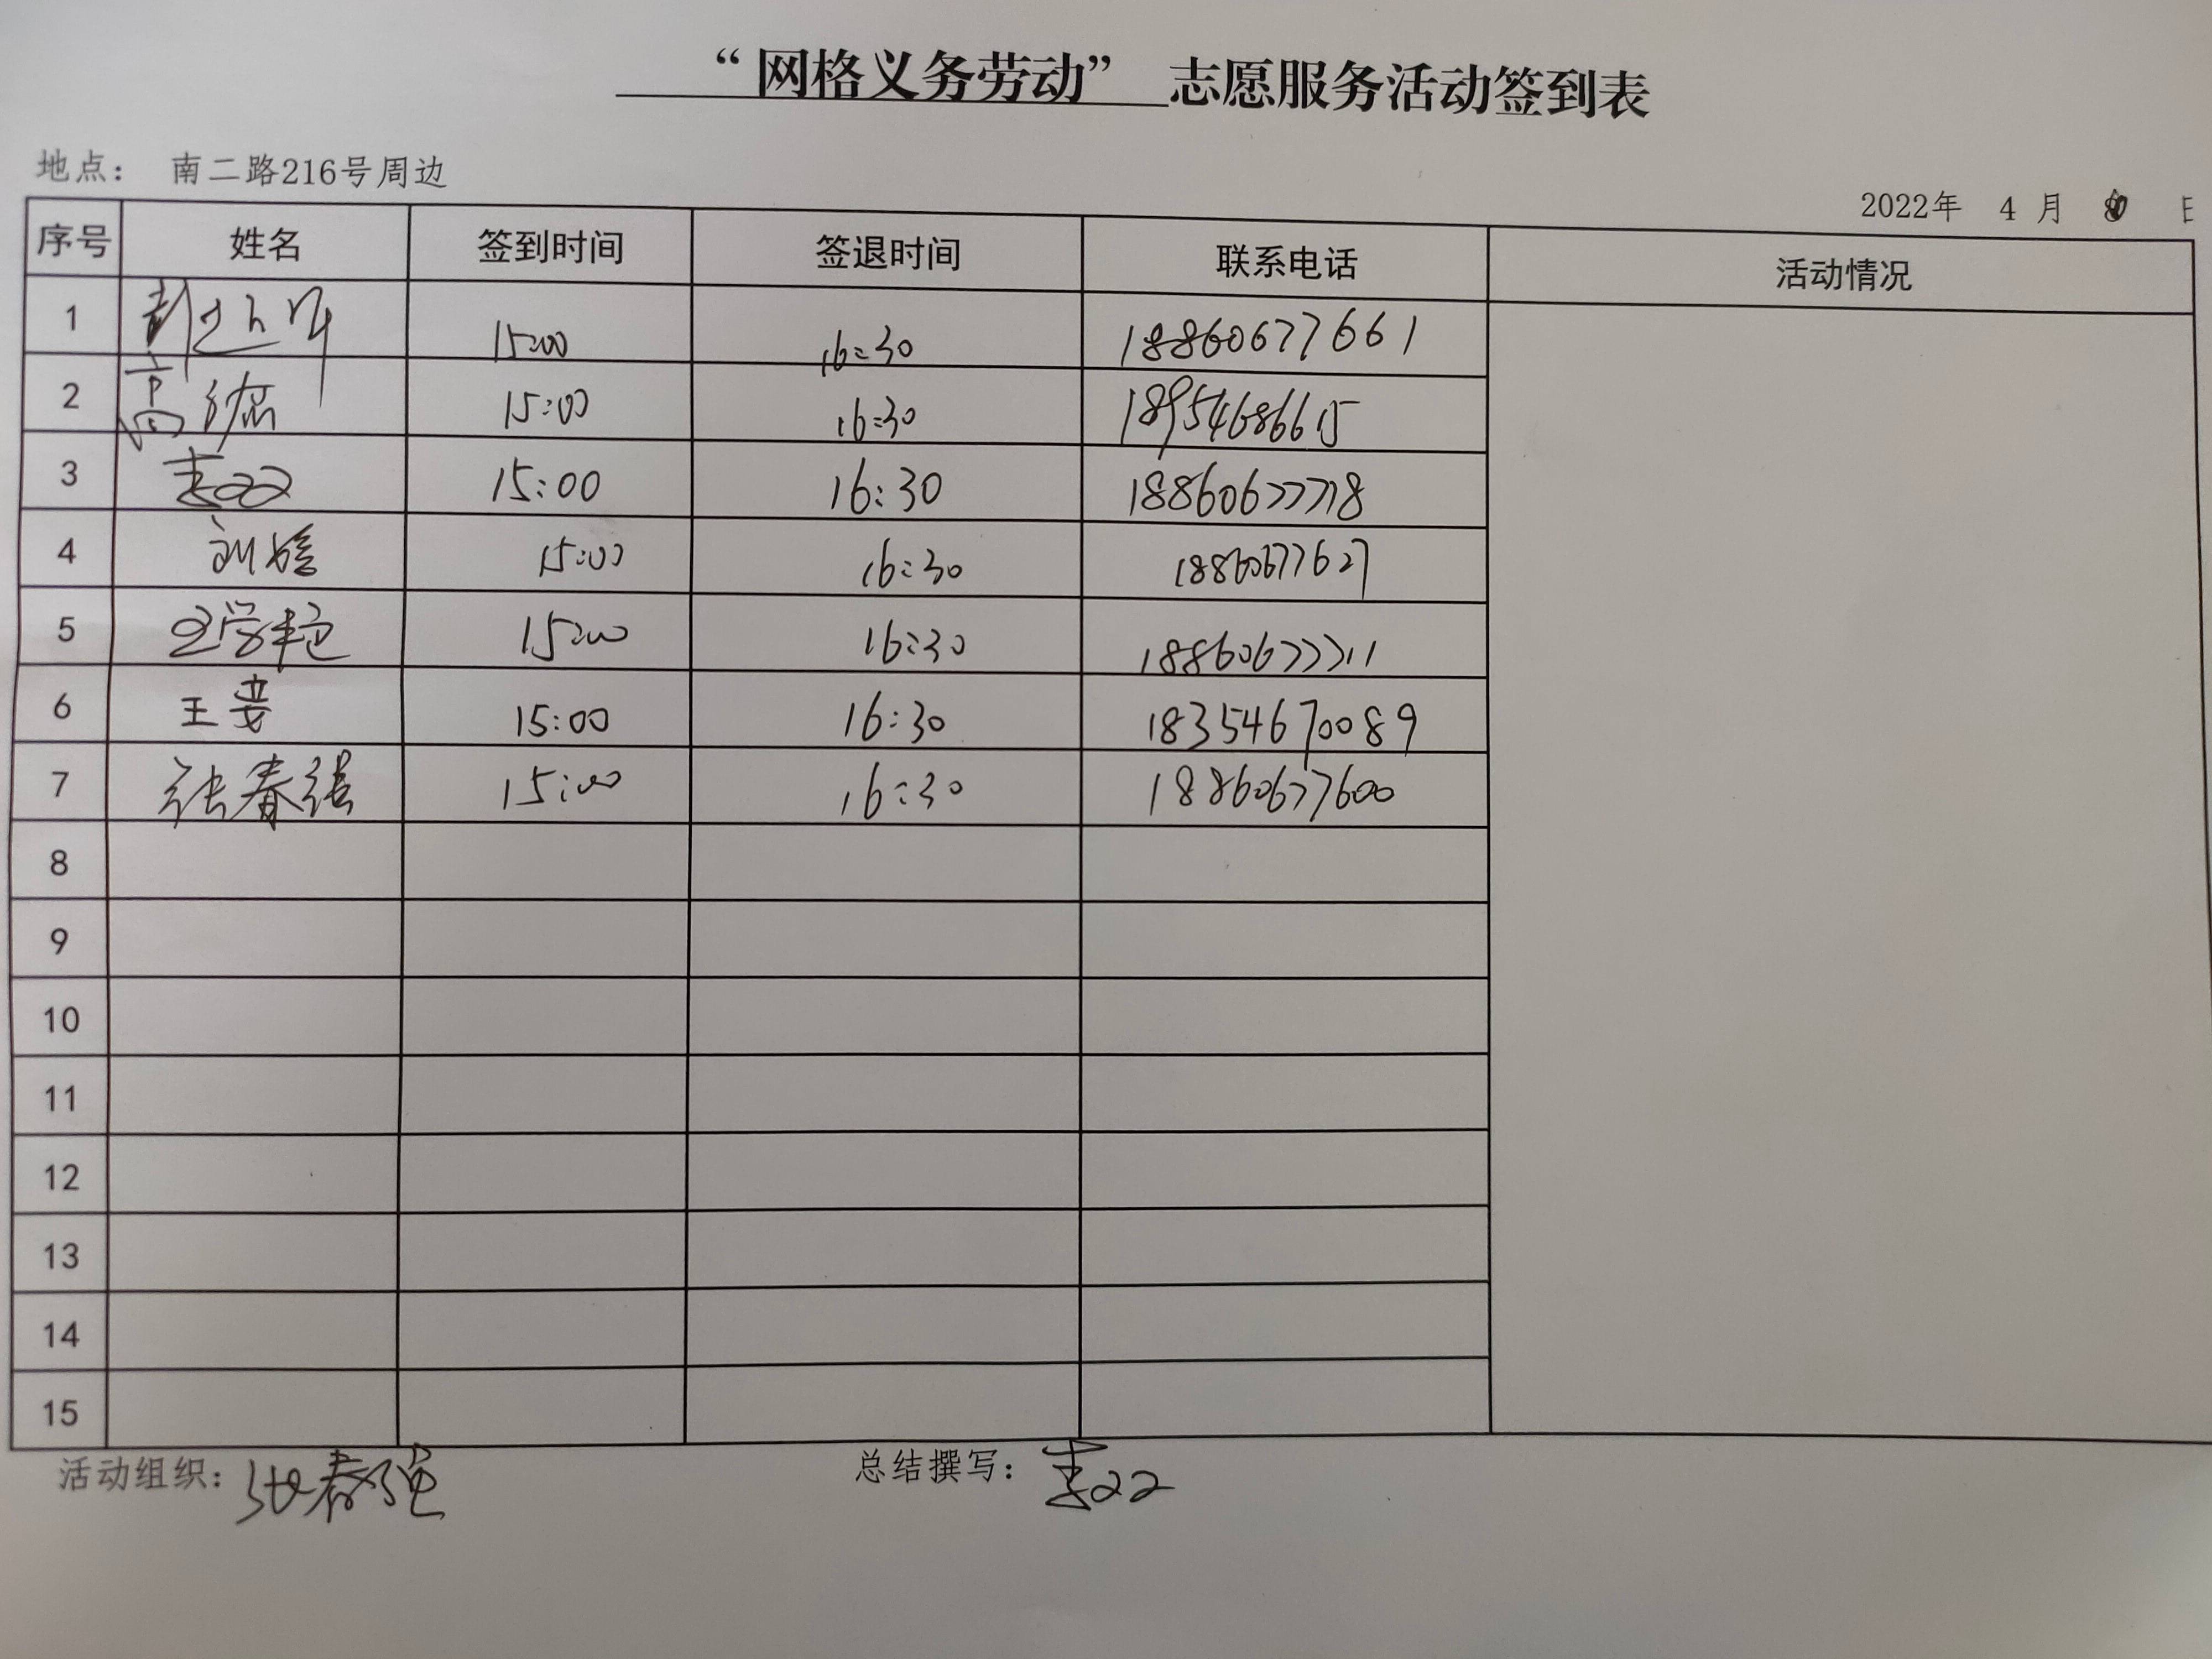 “网格义务劳动” 志愿服务活动签到表
地点： 南二路216号周边
2022年 4 月 日
序号 姓名 签到时间 签退时间 联系电话 活动情况
1 15:00 16:30 18860677661
2 高 15:00 16:30 18954686615
3 李双双 15:00 16:30 18860677718
4 刘婷 15:00 16:30 18860677627
5 15:00 16:30 18860677711
6 王芸 15:00 16:30 18354670089
7 张春强 15:00 16:30 18860677600
8
9
10
11
12
13
14
15
活动组织： 张春强 总结撰写：